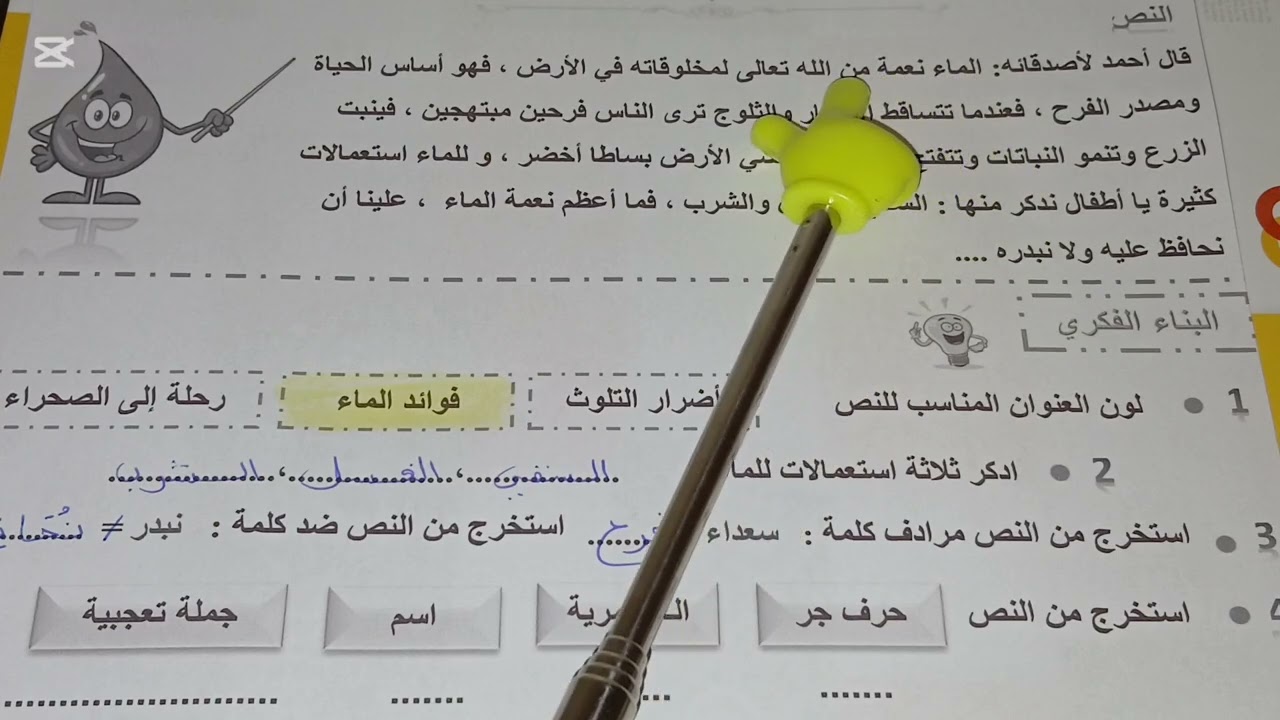 النص
قال أحمد لأصدقائه: الماء نعمة من الله تعالى لمخلوقاته في الأرض ، فهو أساس الحياة
ومصدر الفرح ، فعندما تتساقط والثلوج ترى الناس فرحين مبتهجين ، فينبت
الزرع وتنمو النباتات وتتفتح الأرض بساطا أخضر ، و للماء استعمالات
كثيرة يا أطفال نذكر منها : والشرب ، فما أعظم نعمة الماء ، علينا أن
نحافظ عليه ولا نبدره ....
البناء الفكري
1 • لون العنوان المناسب للنص
أضرار التلوث
فوائد الماء
رحلة إلى الصحراء
2 • اذكر ثلاثة استعمالات السقي، الغسل،
3 • استخرج من النص مرادف كلمة : سعداء استخرج من النص ضد كلمة : نبدر ≠
• استخرج من النص
حرف جر
اسم
جملة تعجبية